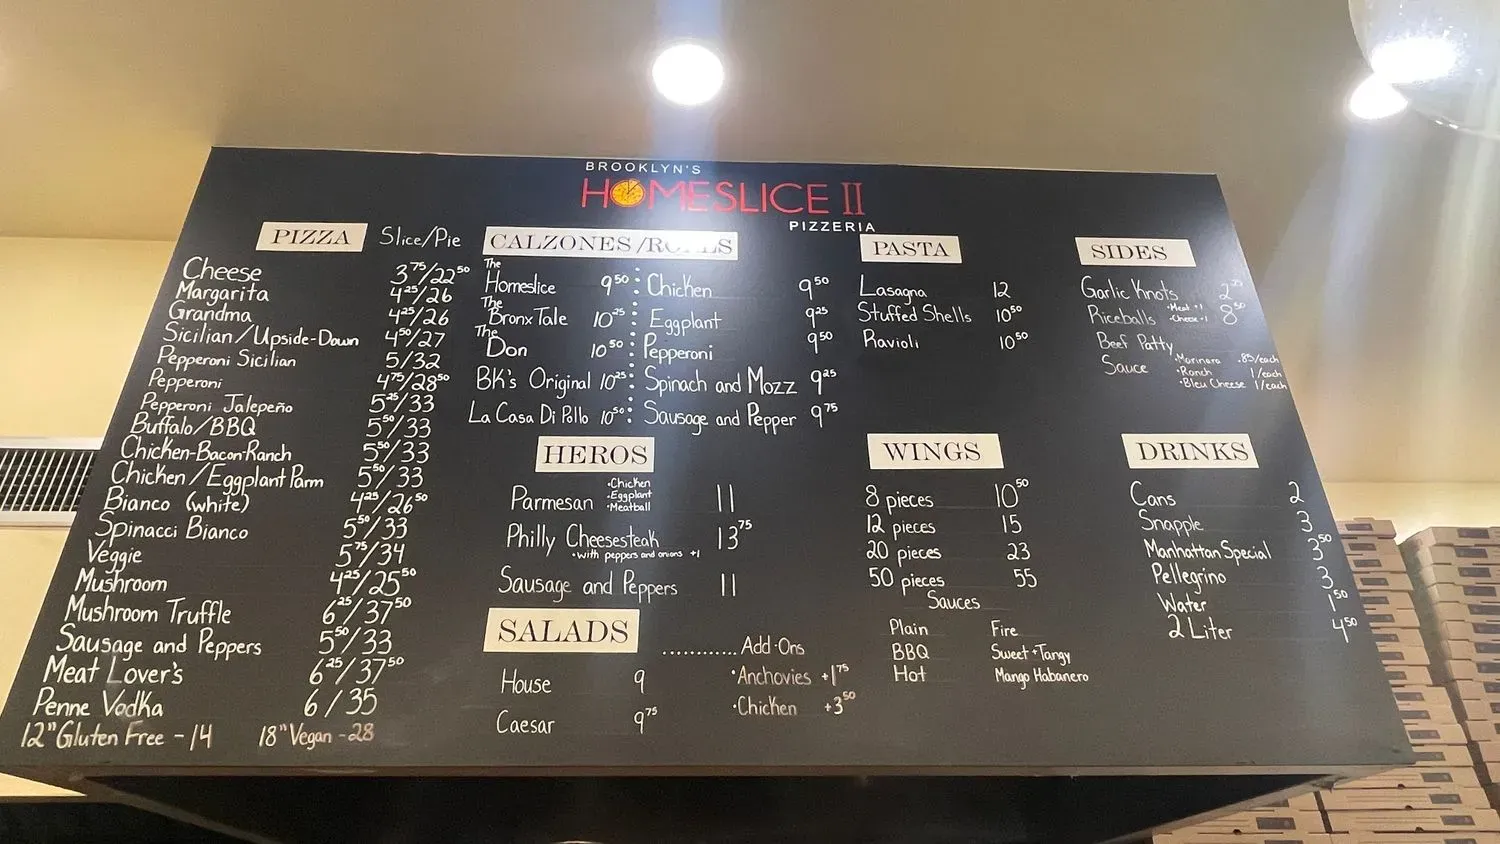 BROOKLYN'S
HOMESLICE II
PIZZERIA
PIZZA Slice/Pie
Cheese 3.75/22.50
Margarita 4.25/26
Grandma 4.25/26
Sicilian/Upside-Down 4.50/27
Pepperoni Sicilian 5/32
Pepperoni 4.75/28.50
Pepperoni Jalepeño 5.25/33
Buffalo/BBQ 5.50/33
Chicken-Bacon-Ranch 5.50/33
Chicken/Eggplant Parm 5.50/33
Bianco (white) 4.25/26.50
Spinacci Bianco 5.50/33
Veggie 5.75/34
Mushroom 4.25/25.50
Mushroom Truffle 6.25/37.50
Sausage and Peppers 5.50/33
Meat Lover's 6.25/37.50
Penne Vodka 6/35
12" Gluten Free - 14 18" Vegan - 28
CALZONES/ROLLS
The Homeslice 9.50
The Bronx Tale 10.25
The Don 10.50
BK's Original 10.25
La Casa Di Pollo 10.50
Chicken 9.50
Eggplant 9.25
Pepperoni 9.50
Spinach and Mozz 9.25
Sausage and Pepper 9.75
HEROS
Parmesan •Chicken •Eggplant •Meatball 11
Philly Cheesesteak 13.75
•with peppers and onions +1
Sausage and Peppers 11
SALADS
House 9
Caesar 9.75
............Add-Ons
•Anchovies +1.75
•Chicken +3.50
PASTA
Lasagna 12
Stuffed Shells 10.50
Ravioli 10.50
WINGS
8 pieces 10.50
12 pieces 15
20 pieces 23
50 pieces 55
Sauces
Plain Fire
BBQ Sweet + Tangy
Hot Mango Habanero
SIDES
Garlic Knots
Riceballs •Meat +1 •Cheese +1 8.50
Beef Patty
Sauce •Marinara .85/each
•Ranch 1/each
•Bleu Cheese 1/each
DRINKS
Cans 2
Snapple 3
Manhattan Special 3.50
Pellegrino 3
Water 1.50
2 Liter 4.50